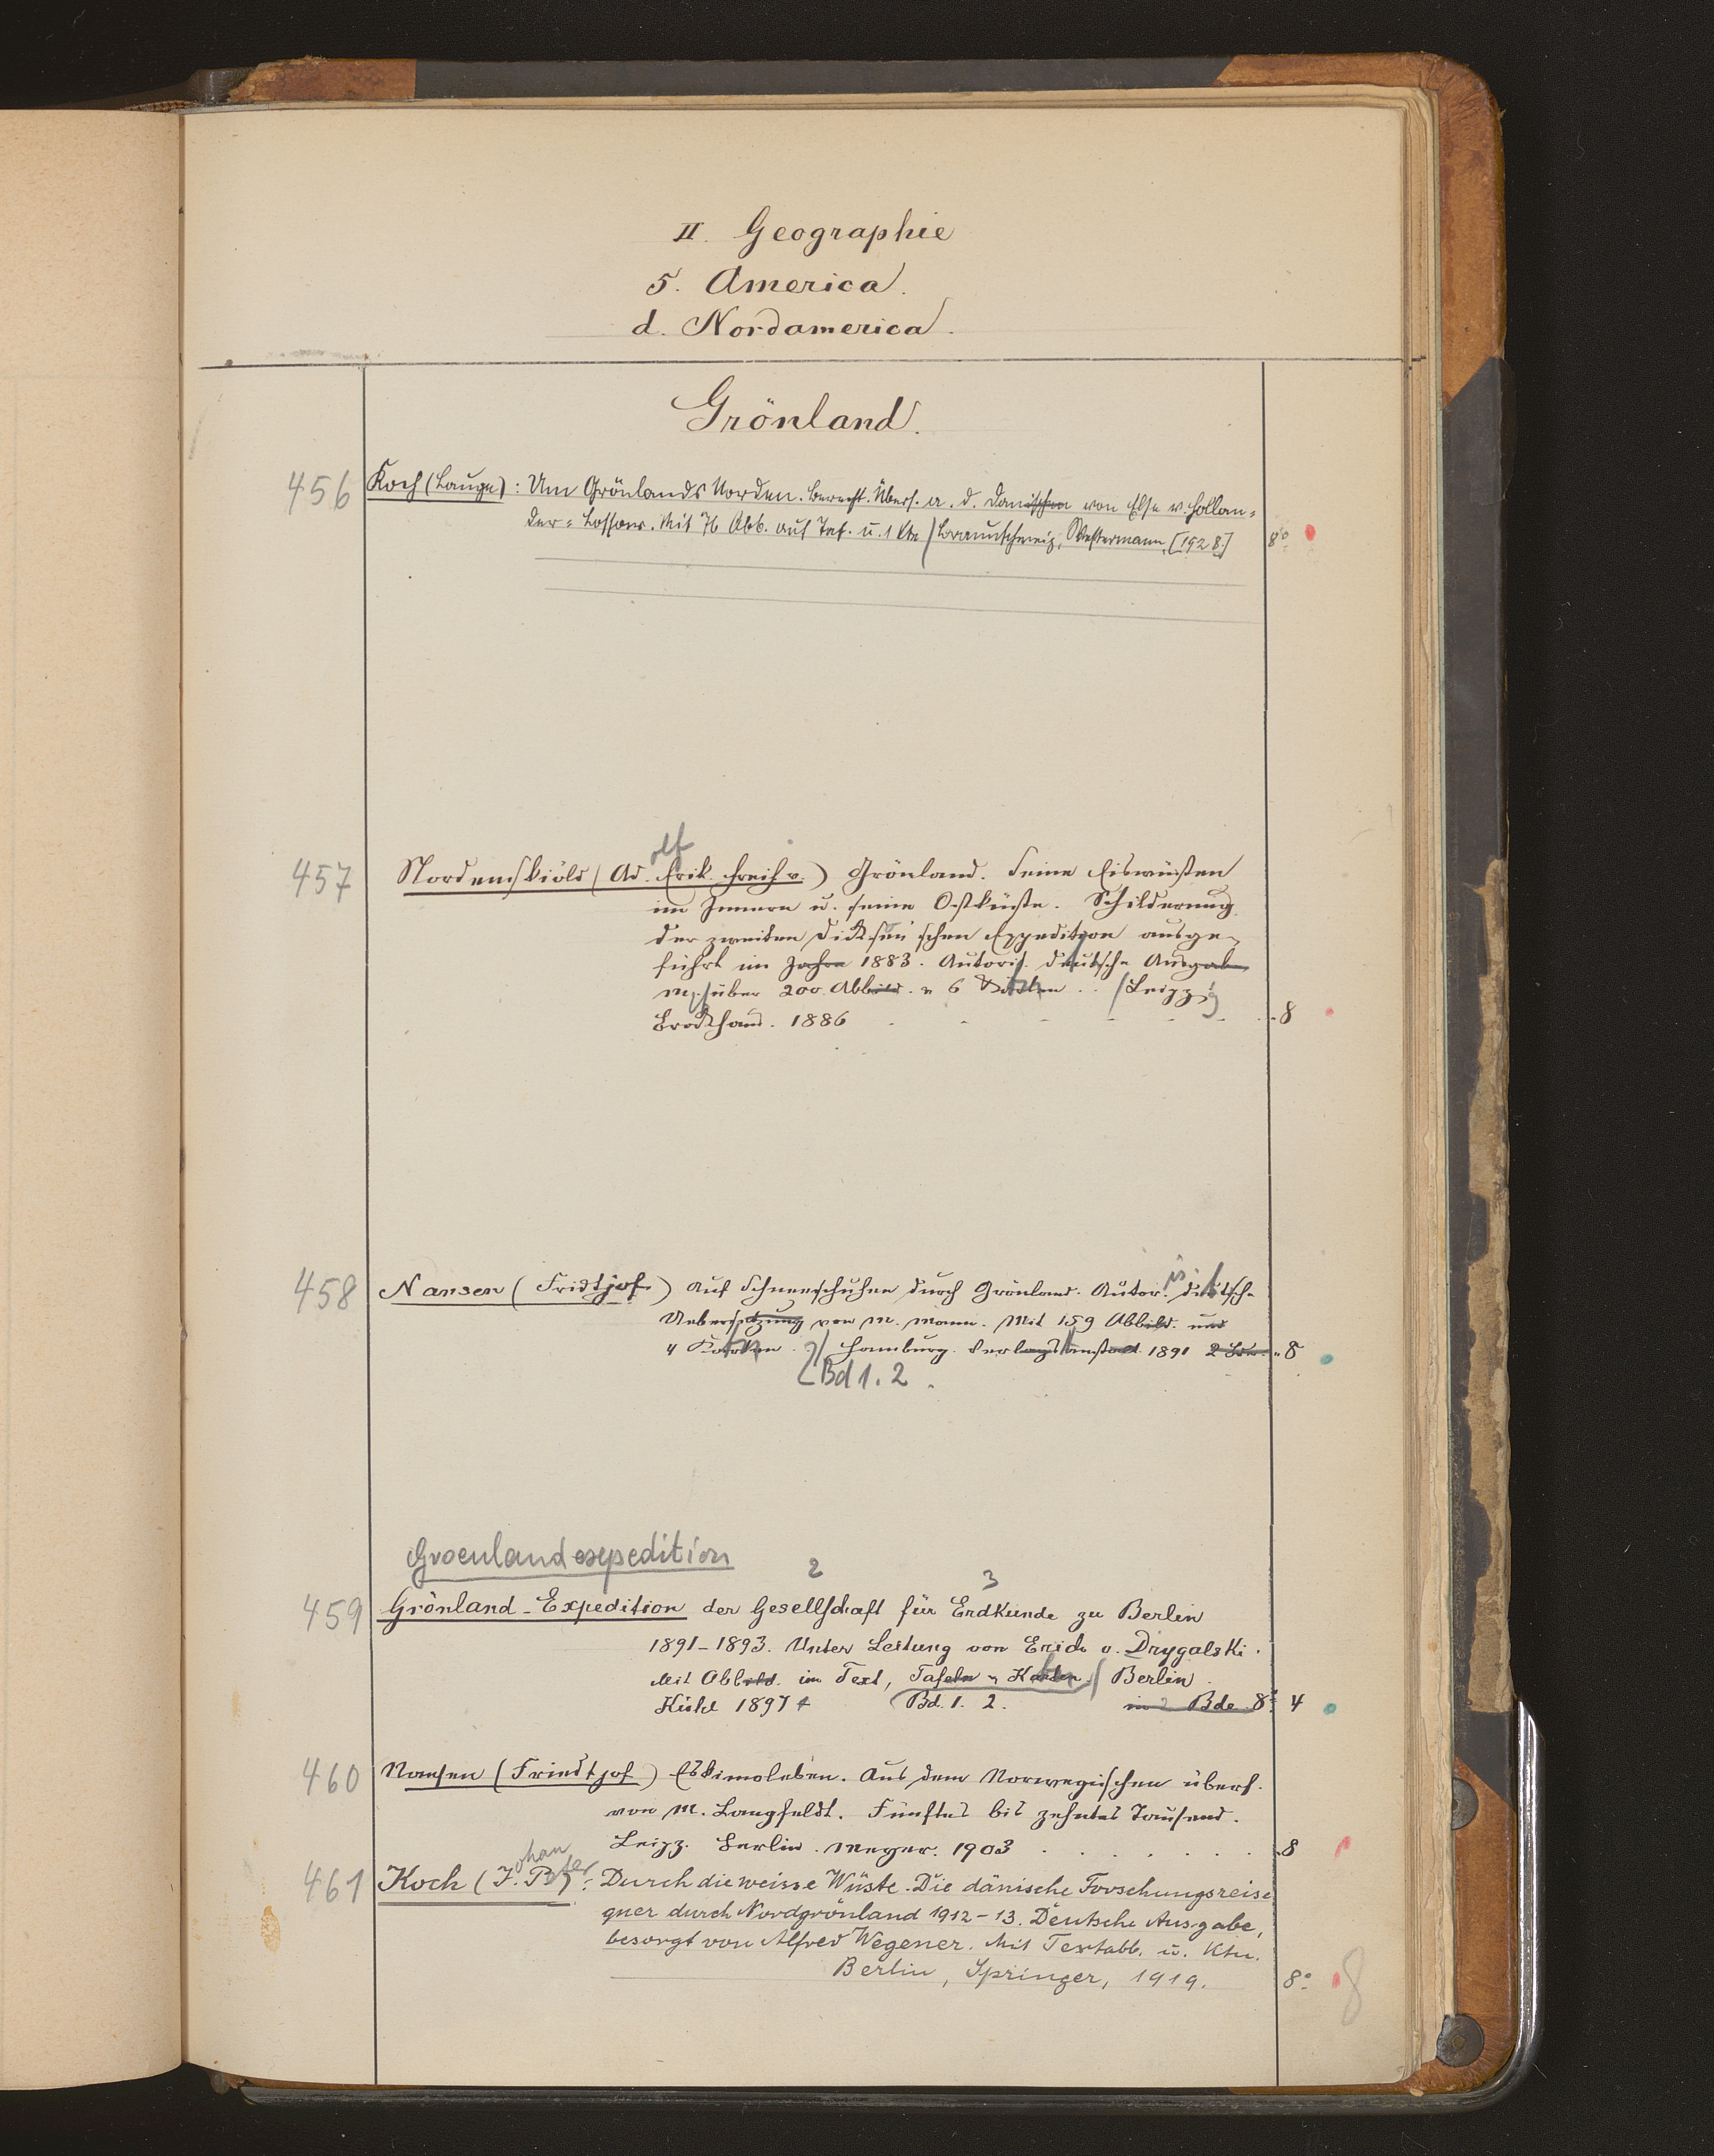 II. Geographie
5. America.
d. Nordamerica.
Grönland.
456 Koch (Lauge): Um Grönlands Norden. Berecht. Übers. a. d. Dänischen von Else v. Hollan-
der-Lossow. Mit 76 Abb. auf Taf. u. 1 Kte / Braunschweig, Westermann, [1928] 8°
457 Nordenskiöld (Ad.olf Erik Freih v.) Grönland. Seine Eiswüsten
im Innern u. seine Ostküste. Schilderung
der zweiten Dickson'schen Expedition ausge-
führt im Jahre 1883. Autoris. deutsche Ausgabe
m. über 200 Abbild. u 6 Karten .. / Leipzig
Brockhaus. 1886 8
458 Nansen (Fridtjof) Auf Schneeschuhen durch Grönland. Autoris. deutsche
Uebersetzung von M. Mann. Mit 159 Abbild. und
4 Karten. / Hamburg. Verlagsanstalt 1891 2 Bde. 8
Bd 1. 2.
Groenlandexpedition
2 3
459 Grönland-Expedition der Gesellschaft für Erdkunde zu Berlin
1891-1893. Unter Leitung von Erich v. Drygalski.
Mit Abbild. im Text, Tafeln u Karten / Berlin
Kühl 1897 4 Bd. 1. 2. in 2 Bde 8° 4
460 Nansen (Friedtjof) Eskimoleben. Aus dem Norwegischen übers.
von M. Langfeldt. Fünftes bis zehntes Tausend.
Leipz. Berlin. Meyer. 1903 8
461 Koch (J.ohan Peter): Durch die weisse Wüste. Die dänische Forschungsreise
quer durch Nordgrönland 1912-13. Deutsche Ausgabe,
besorgt von Alfred Wegener. Mit Textabb. u. Ktn.
Berlin, Springer, 1919. 8° 8